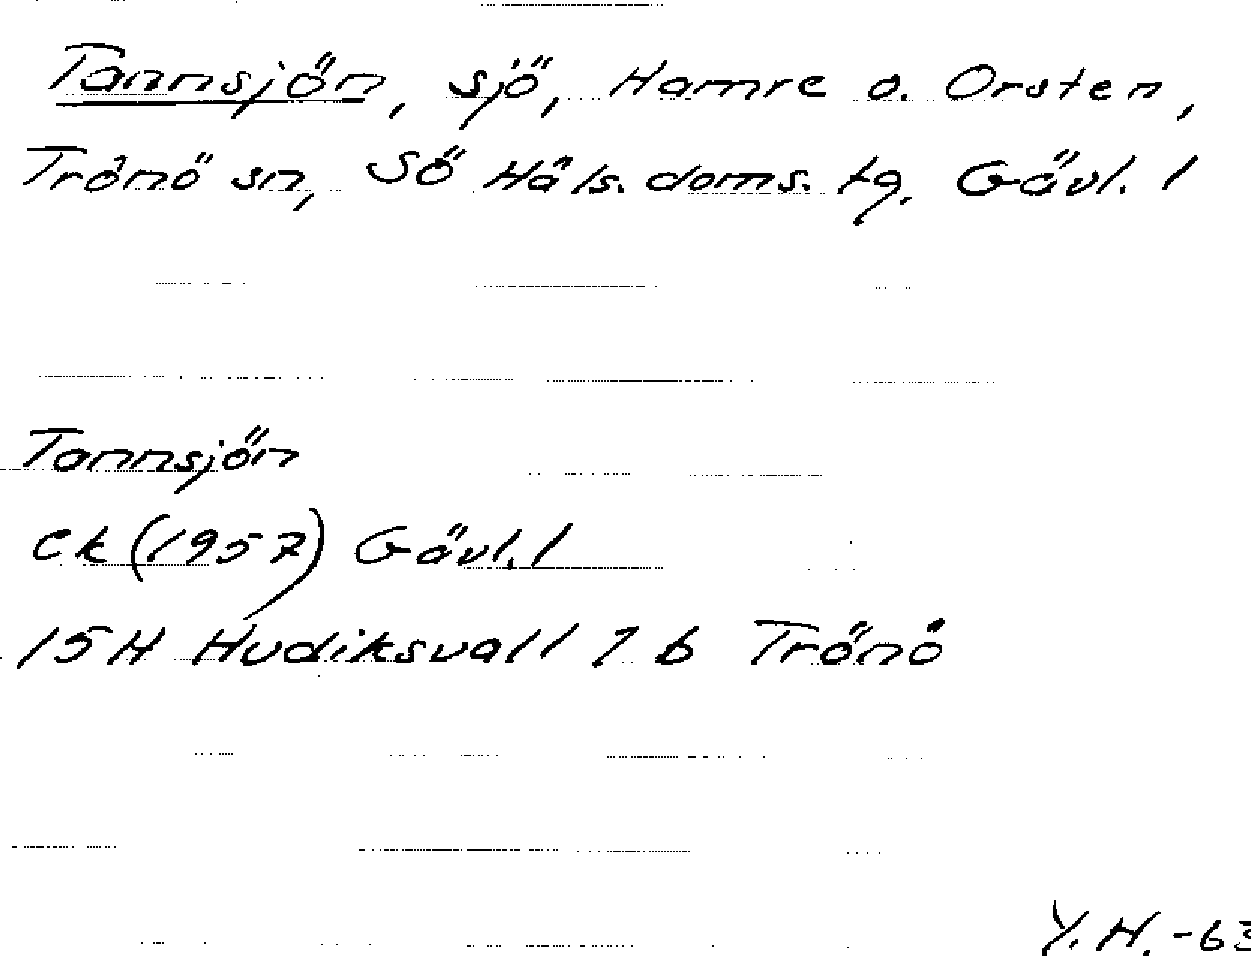 Tannsjön, sjö, Hamre o. Orsten,
Trönö sn, Sö Häls. doms. tg. Gävl. l
Tannsjön
Ek (1957) Gävl. l
15H Hudiksvall 7 b Trönö
Y. H. -63